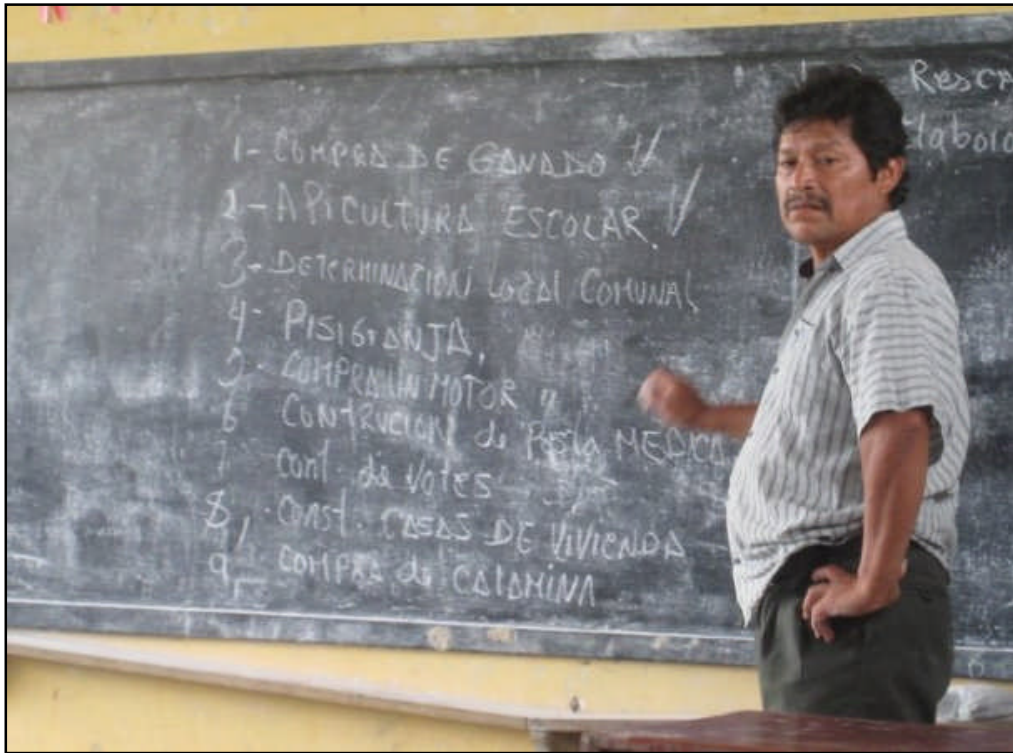 Resca
labora
1- COMPRA DE GANADO
2- APICULTURA ESCOLAR.
3- DETERMINACION LOCAL COMUNAL
4- PISIGRANJA.
5- COMPRA UN MOTOR "
6 CONTRUCION de MEDICA
7 cont. de votes
8, CONST. CASAS DE VIVIENDA
9, COMPRA de CALAMINA